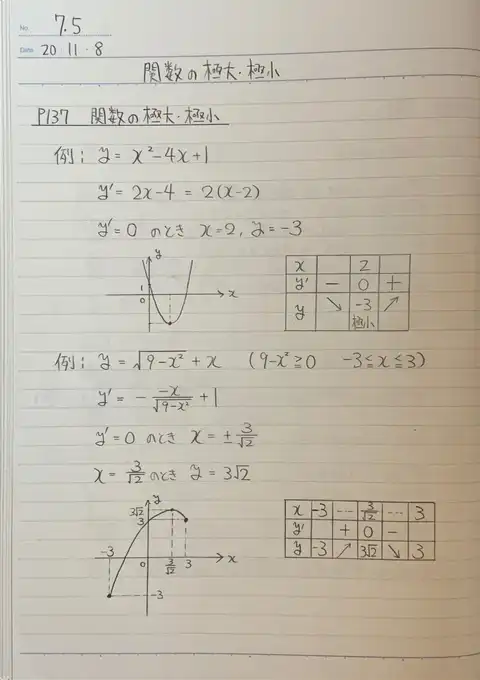 No. 7.5
Date 20・11・8
関数の極大・極小
P137 関数の極大・極小
例: y = x² - 4x + 1
y' = 2x - 4 = 2(x-2)
y' = 0 のとき x = 2, y = -3
y
1
0
x
x 2
y' − 0 +
y ↘ -3 極小 ↗
例: y = √(9-x²) + x (9-x² ≧ 0 -3 ≦ x ≦ 3)
y' = - -x/√(9-x²) + 1
y' = 0 のとき x = ± 3/√2
x = 3/√2 のとき y = 3√2
y
3√2
3
-3
0
3/√2
3
x
-3
x -3 … 3/√2 … 3
y' + 0 −
y -3 ↗ 3√2 ↘ 3